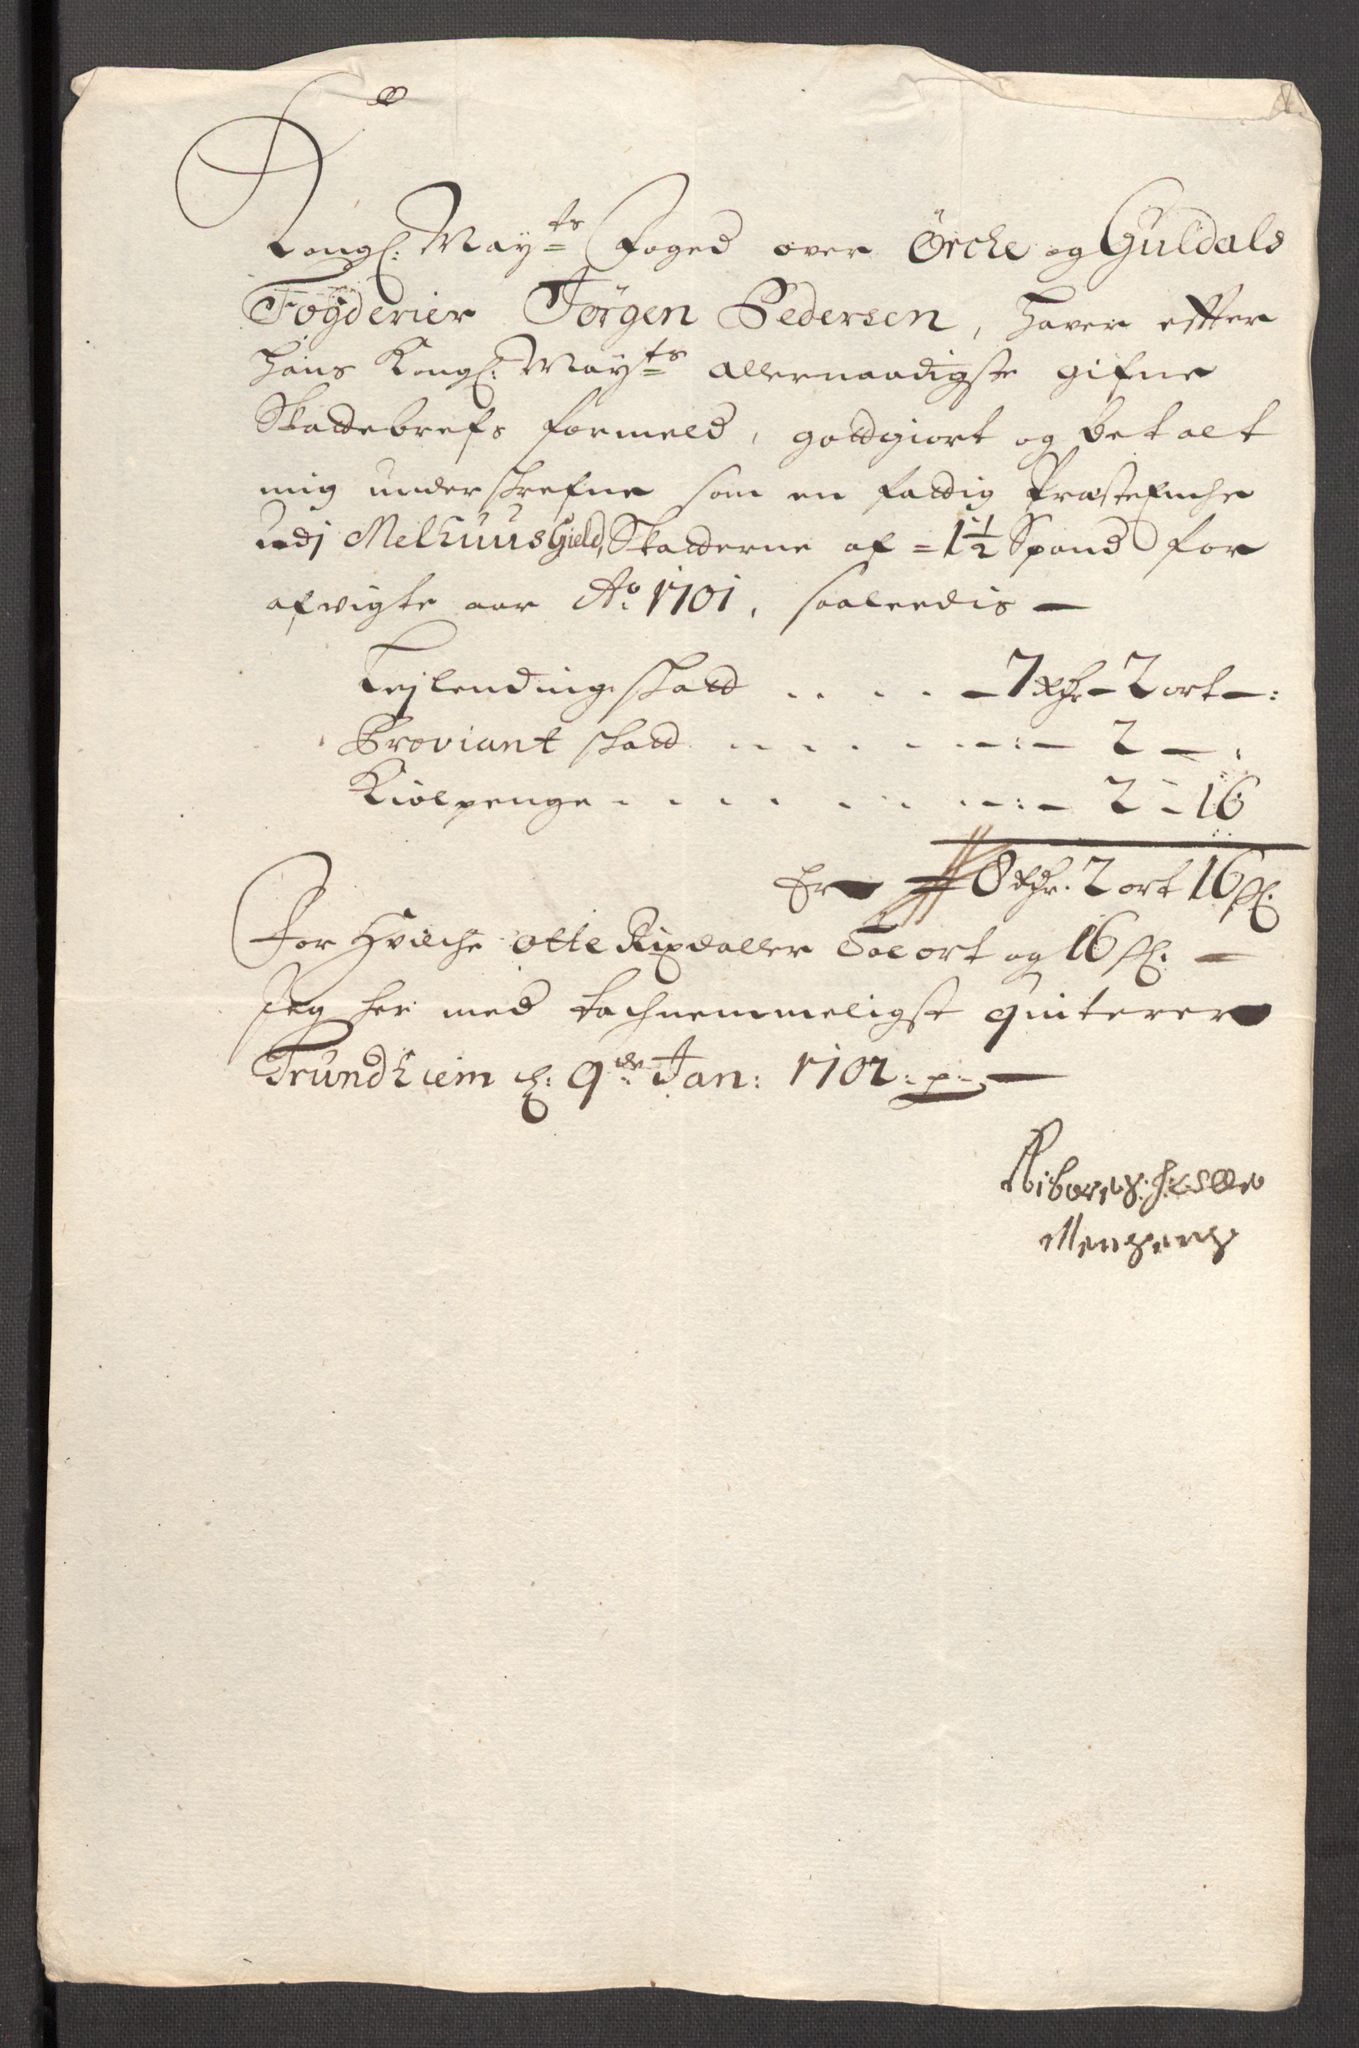 Kongl: May:ts Foged over Örche og Guldals
Fogderier Jörgen Pedersen, hafver effter
hans Kongl: May:ts allernaadigste gifne
Skattebrefs formeld, gottgiort og betalt
mig underskrefne som en fattig Præste Enche
udj Melhuus Gield, Skatterne af = 1½ Spand for
afvigte aar Ao: 1701, saaleedis —
Lejlendings skatt . . . . — 7 Rdr — 2 ort — :
Proviant skatt . . . . . . — : — 2 — :
Kiolpenge . . . . . . . — : — 2 — 16
Er — 8 Rdr. 2 ort 16 s:
For Hvilche otte Rixdaller Toe ort og 16 s: —
Jeg her med tachnemmeligst quiterer
Trundhiem d: 9de Jan: 1702 :